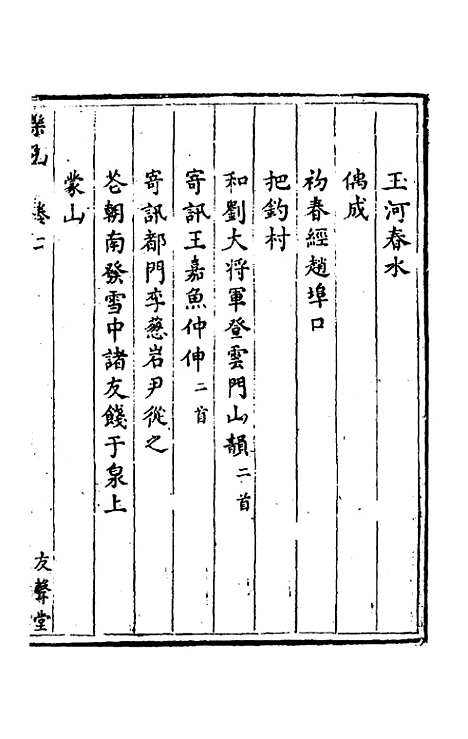 玉河春水
偶成
初春經趙埠口
把釣村
和劉大將軍登雲門山韻二首
寄訊王嘉魚仲伸二首
寄訊都門李蔥岩尹從之
花朝南發雪中諸友餞于泉上
蒙山
卷二
友聲堂